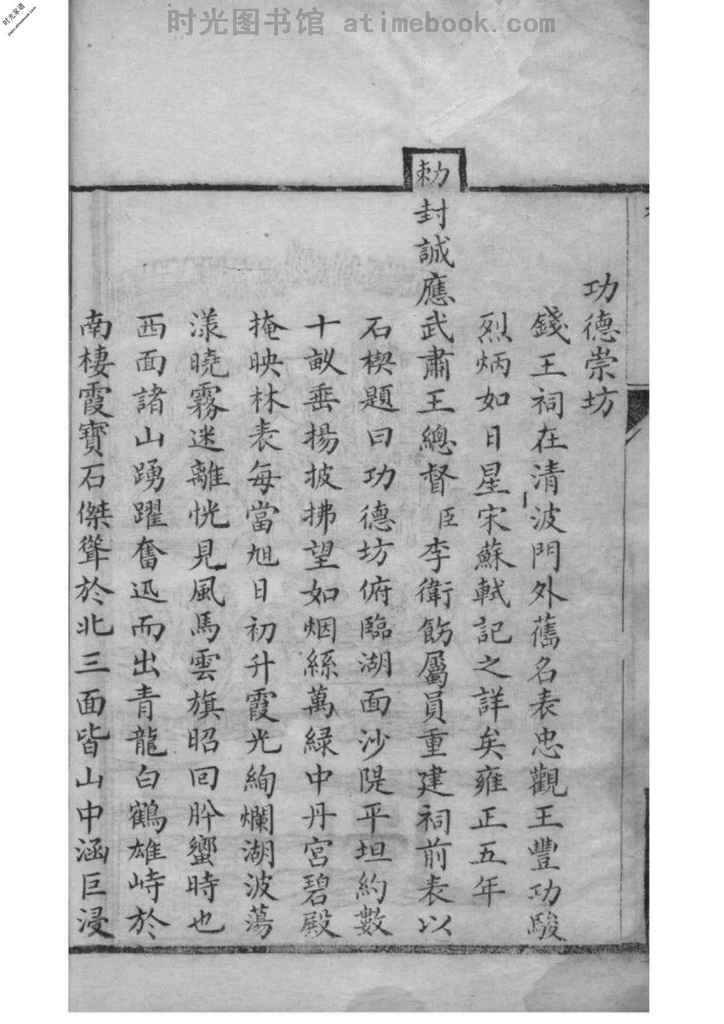 时光图书馆 atimebook.com
功德崇坊
錢王祠在清波門外舊名表忠觀王豐功駿
烈炳如日星宋蘇軾記之詳矣雍正五年
勅封誠應武肅王總督臣李衛飭屬員重建祠前表以
石楔題曰功德坊俯臨湖面沙隄平坦約數
十畝垂楊披拂望如烟綠萬綠中丹宮碧殿
掩映林表每當旭日初升霞光絢爛湖波蕩
漾曉霧迷離恍見風馬雲旗昭回肹蠁時也
西面諸山踴躍奮迅而出青龍白鶴雄峙於
南棲霞寶石傑聳於北三面皆山中涵巨浸